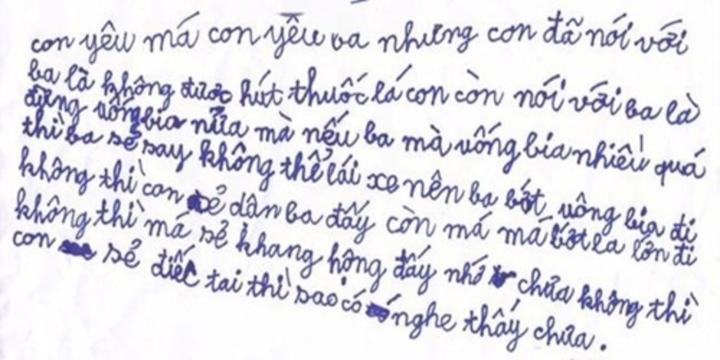 con yêu má con yêu ba nhưng con đã nói với
ba là không được hút thuốc lá con còn nói với ba là
đừng uống bia nữa mà nếu ba mà uống bia nhiều quá
thì ba sẻ say không thể lái xe nên ba bớt uông bia đi
không thì con sẻ dân ba đấy còn má má bớt la lớn đi
không thì má sẻ khang hộng đấy nhớ chưa không thì
con sẻ điếc tai thì sao có nghe thấy chưa.